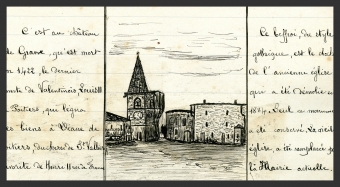 C'est au château
de Grane, qu'est mort
en 1422, le dernier
comte de Valentinois, Louis II
de Poitiers, qui légua
ses biens, à Diane de
Poitiers, duchesse de St Vallier
favorite de Henri II de France
Ce beffroi, du style
gothique, est le clocher
de l'ancienne église
qui a été démolie en
1884. Seul ce monument
a été conservé. La vieille
église a été remplacée par
la Mairie actuelle.